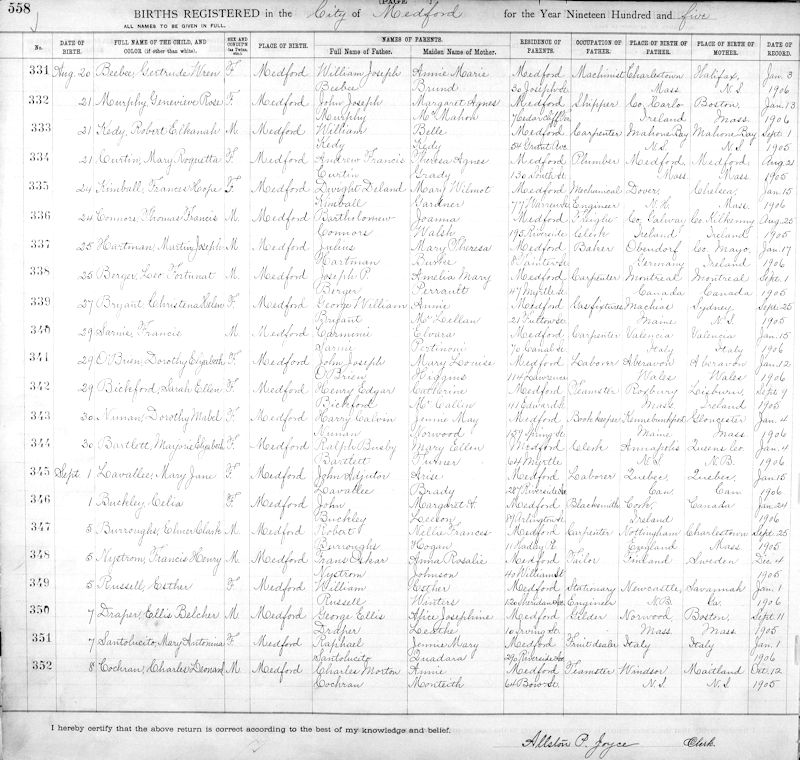 558
PAGE
BIRTHS REGISTERED in the City of Medford for the Year Nineteen Hundred and five
ALL NAMES TO BE GIVEN IN FULL.
No. DATE OF BIRTH. FULL NAME OF THE CHILD, AND COLOR (if other than white). SEX AND CONDIT'N (as Twins, etc.) PLACE OF BIRTH. NAMES OF PARENTS. Full Name of Father. Maiden Name of Mother. RESIDENCE OF PARENTS. OCCUPATION OF FATHER. PLACE OF BIRTH OF FATHER. PLACE OF BIRTH OF MOTHER. DATE OF RECORD.
331 Aug. 20 Beebee, Gertrude Wren F. Medford William Joseph Annie Marie Medford Machinist Charlestown Halifax, Jan. 3
Beebee Brund 30 Joseph St Mass. N.S. 1906
332 21 Murphy, Genevieve Rose F. Medford John Joseph Margaret Agnes Medford Shipper Co. Carlo Boston, Jan. 13
Murphy McMahon Ireland Mass. 1906
333 21 Kedy, Robert Elkanah M. Medford William Belle Medford Carpenter Mahone Bay Mahone Bay Sept. 1
Kedy Kedy 54 Ave. N.S. N.S 1905
334 21 Curtin, Mary Roquetta F. Medford Andrew Francis Theresa Agnes Medford Plumber Medford, Medford, Aug. 21
Curtin Grady 130 South St Mass. Mass 1905
335 24 Kimball, Frances Hope F. Medford Dwight Deland Mary Wilmot Medford Mechanical Dover, Chelsea, Jan. 15
Kimball Gardner 77 Warren Engineer N.H. Mass. 1906
336 24 Connors, Thomas Francis M. Medford Bartholomew Joanna Medford Freight Co. Galway Co. Kilkenny Aug. 25
Connors Walsh 195 Riverside Clerk Ireland Ireland 1905
337 25 Hartman, Martin Joseph M. Medford Julius Mary Theresa Medford Baker Obendorf Co. Mayo, Jan. 17
Hartman Burke Germany Ireland 1906
338 25 Berger, Leo Fortunat M. Medford Joseph P. Amelia Mary Medford Carpenter Montreal Montreal Sept. 1
Berger Perrault 47 Myrtle St Canada Canada 1905
339 27 Bryant, Christena Helen F. Medford George William Annie Medford Gasfixture Machias Sydney, Sept. 25
Bryant McLellan 21 Fulton St Maine N.S. 1905
340 29 Sarnie, Francis M. Medford Carmini Elvara Medford Carpenter Valencia Valencia Jan. 15
Sarnie Portinoni 70 Canal St Italy Italy 1906
341 29 O'Brien, Dorothy Elizabeth F. Medford John Joseph Mary Louise Medford Laborer Aberavon Aberavon Jan. 12
O'Brien Higgins 114 Lawrence Wales Wales 1906
342 29 Bickford, Sarah Ellen F. Medford Henry Edgar Catherine Medford Teamster Roxbury Lisburn, Sept. 9
Bickford McCallyn 41 Edward St Mass Ireland 1905
343 30 Ninan, Dorothy Mabel F. Medford Harry Calvin Jennie May Medford Bookkeeper Kennebunkport Gloucester Jan. 4
Ninan Norwood 157 Spring St Maine Mass 1906
344 30 Bartlett, Marjorie Elizabeth F. Medford Ralph Busby Mary Ellen Medford Clerk Annapolis Queens Co. Jan. 4
Bartlett Turner 64 Myrtle N.S N.B. 1906
345 Sept. 1 Lavallee, Mary Jane F. Medford John Arise Medford Laborer Quebec, Quebec, Jan. 15
Lavallee Brady 287 Riverside Ave Can. Can 1906
346 1 Buckley, Celia F. Medford John Margaret H. Medford Blacksmith Cork, Canada Jan. 24
Buckley Leeson 87 Arlington St Ireland 1906
347 5 Burroughs, Elmer Clark M. Medford Robert Nellie Frances Medford Carpenter Nottingham Charlestown Sept. 25
Burroughs Hogan England Mass. 1905
348 5 Nystrom, Francis Henry M. Medford Frans Oskar Anna Rosalie Medford Tailor Finland Sweden Dec. 4
Nystrom Johnson 40 William St 1905
349 5 Russell, Esther F. Medford William Esther Medford Stationary Newcastle, Savannah Jan. 1
Russell Winters 120 Sheridan Ave Engineer N.B. Ga. 1906
350 7 Draper, Ellis Belcher M. Medford George Ellis Alice Josephine Medford Gilder Norwood Boston, Sept. 11
Draper 10 Irving St Mass. Mass. 1905
351 7 Santolucito, Mary Antonina F. Medford Raphael Jennie Mary Medford Fruit dealer Italy Italy Jan. 1
Santolucito Quadara 290 Riverside Ave 1906
352 8 Cochran, Charles Leonard M. Medford Charles Morton Annie Medford Teamster Windsor Maitland Oct. 12
Cochran Monteith 64 Bow St. N.S. N.S. 1905
I hereby certify that the above return is correct according to the best of my knowledge and belief.
Allston P. Joyce Clerk.